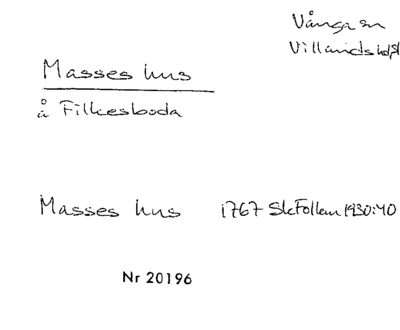 Vånga sn
Villands hd, Sk
Masses hus
å Filkesboda
Masses hus 1767 SkFollem 1930:40
Nr 20196